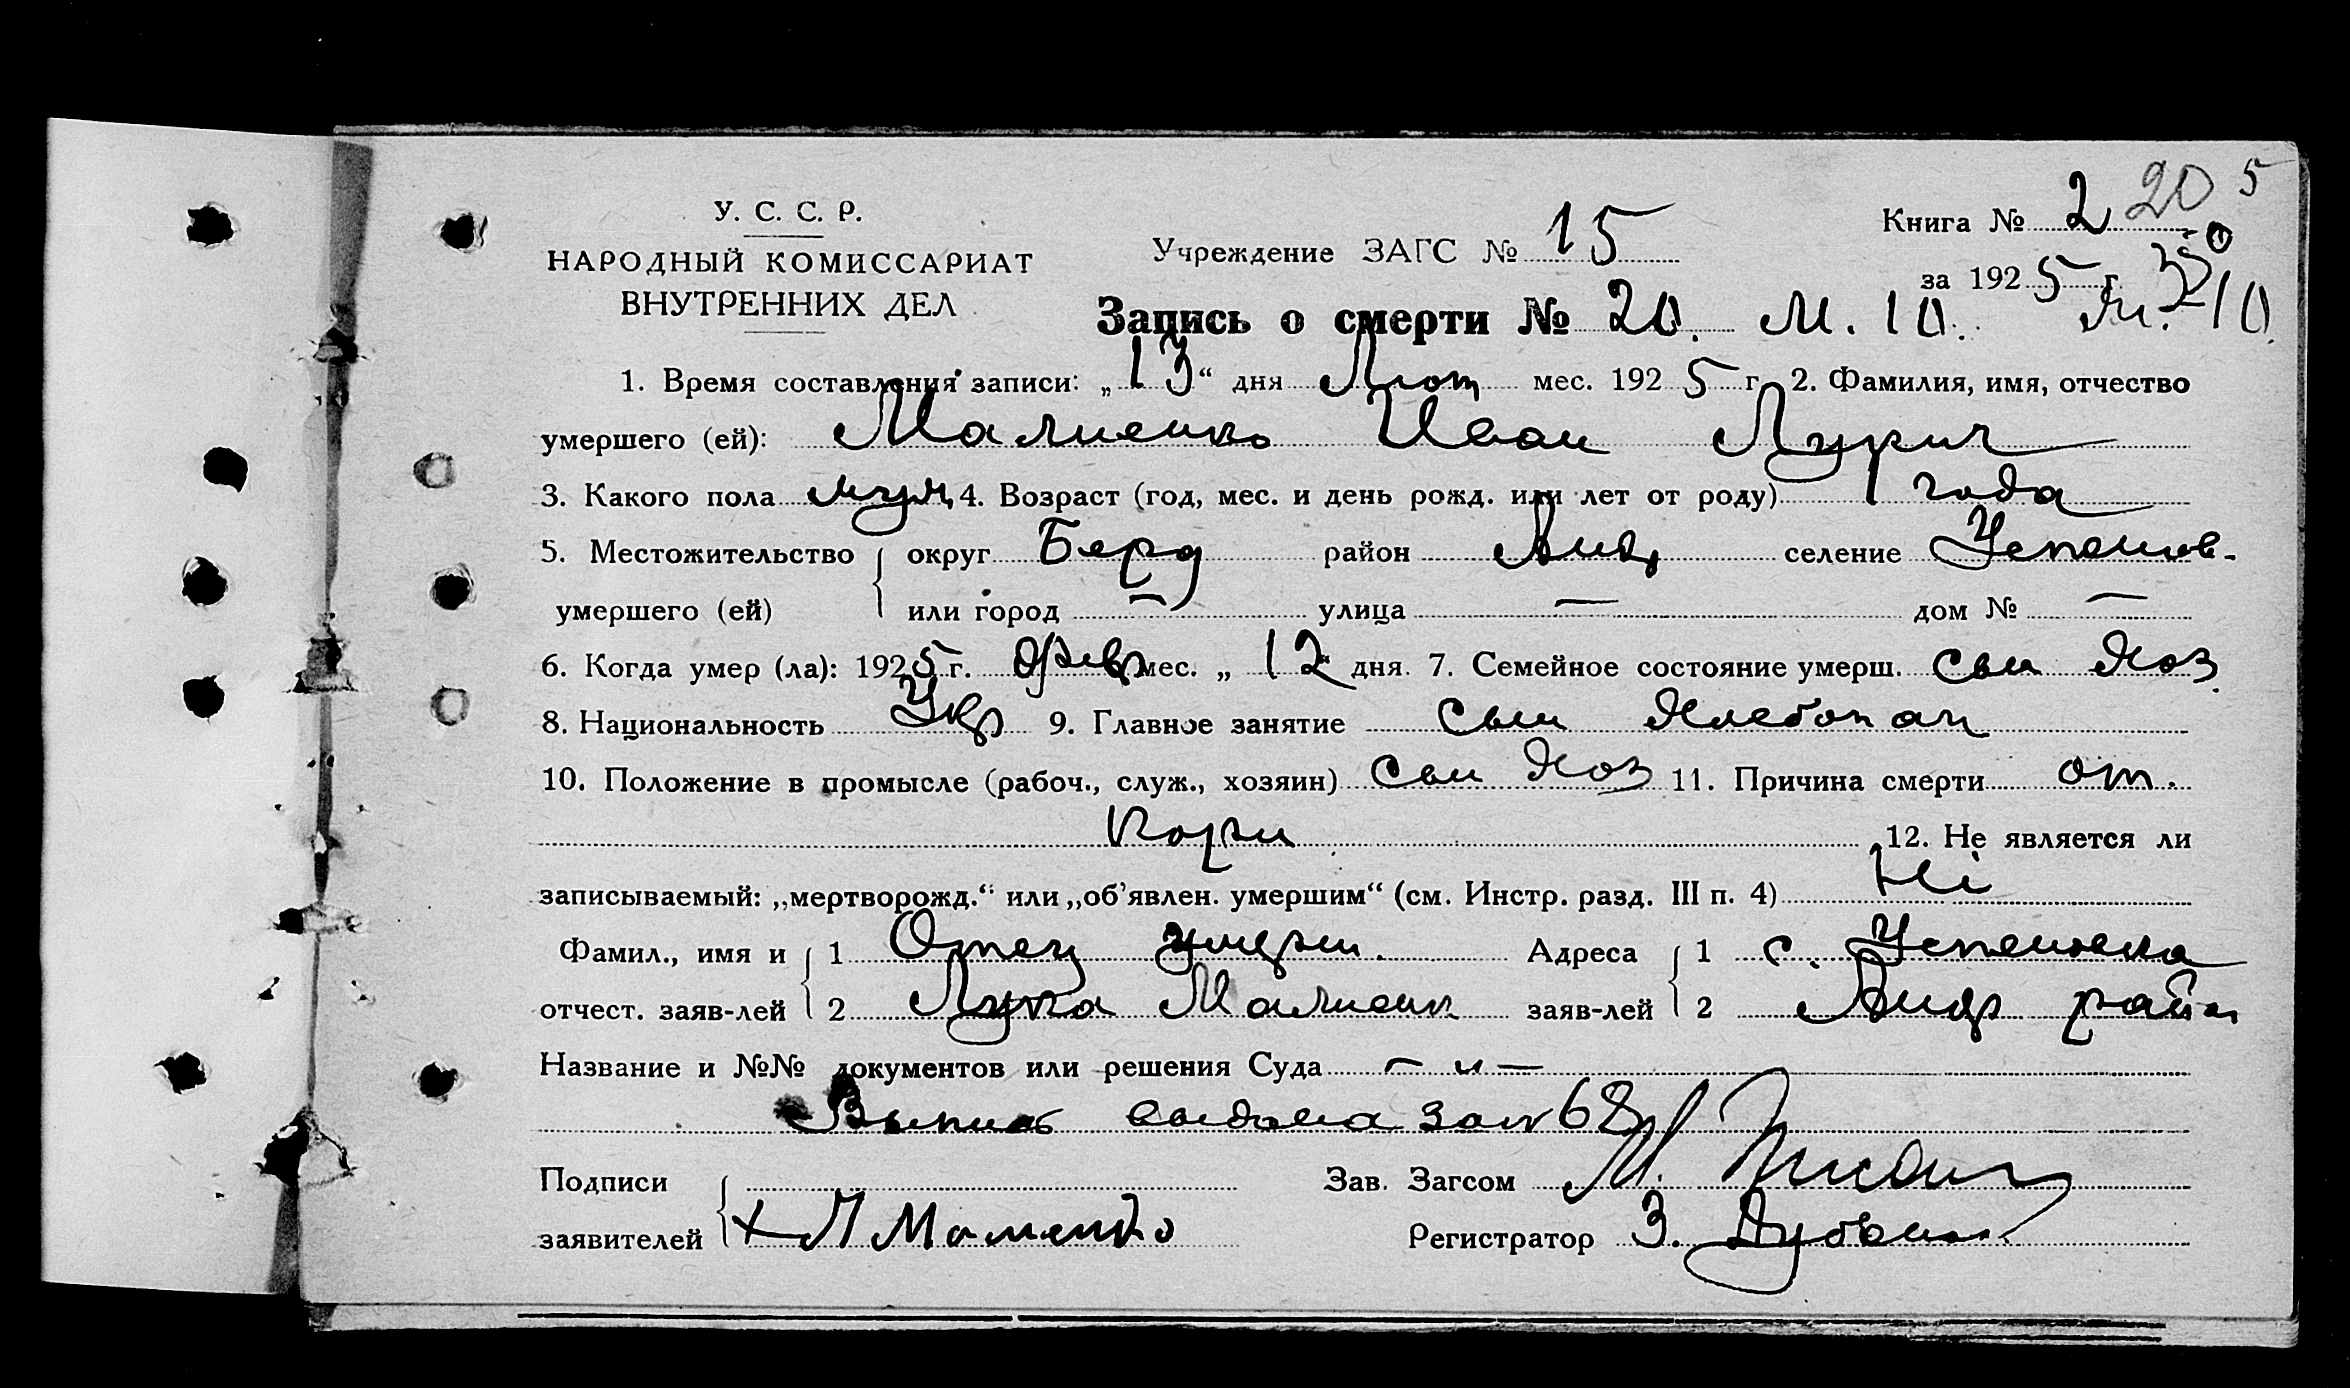 20 5
У. С. С. Р.
Книга № 2
Учреждение ЗАГС № 15
НАРОДНЫЙ КОМИССАРИАТ
за 1925 г. 350
ВНУТРЕННИХ ДЕЛ
Запись о смерти № 20. М. 10. М. 10
1. Время составления записи: „13“ дня Лют мес. 1925 г. 2. Фамилия, имя, отчество
умершего (ей): Малиенко Иван Лукич
3. Какого пола муж, 4. Возраст (год, мес. и день рожд. или лет от роду) 1 года
5. Местожительство округ Берд район Анд селение Успенов-
умершего (ей) или город — улица — дом № —
6. Когда умер (ла): 1925 г. Февр мес. „12“ дня. 7. Семейное состояние умерш. сын Хоз
8. Национальность Укр 9. Главное занятие сын Хлебопаш
10. Положение в промысле (рабоч., служ., хозяин) сын Хоз 11. Причина смерти от.
Кори 12. Не является ли
записываемый: „мертворожд.“ или „об’явлен. умершим“ (см. Инстр. разд. III п. 4) Ні
Фамил., имя и 1 Отец умерш. Адреса 1 с. Успеновка
отчест. заяв-лей 2 Лука Малиенк заяв-лей 2 Андр район
Название и №№ документов или решения Суда — „ —
Выпись выдана за № 68
Подписи Зав. Загсом М.
заявителей + Л Малиенко Регистратор З.